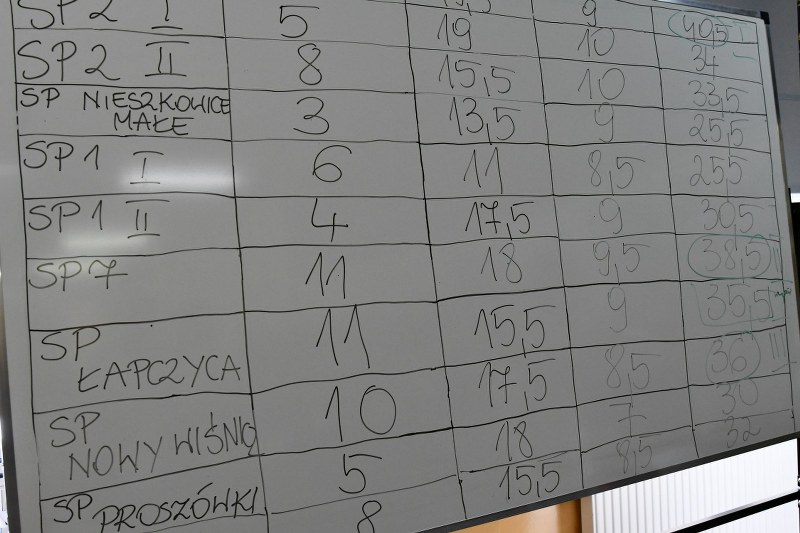 9 40,5
SP 2 I 5 19 10 34
SP 2 II 8 15,5 10 33,5
SP NIESZKOWICE
MAŁE 3 13,5 9 25,5
SP 1 I 6 11 8,5 25,5
SP 1 II 4 17,5 9 30,5
SP 7 11 18 9,5 38,5 II
SP
ŁAPCZYCA 11 15,5 9 35,5
SP
NOWY WIŚNIC 10 17,5 8,5 36 III
SP PROSZÓWKI 5 18 7 30
8 15,5 8,5 32